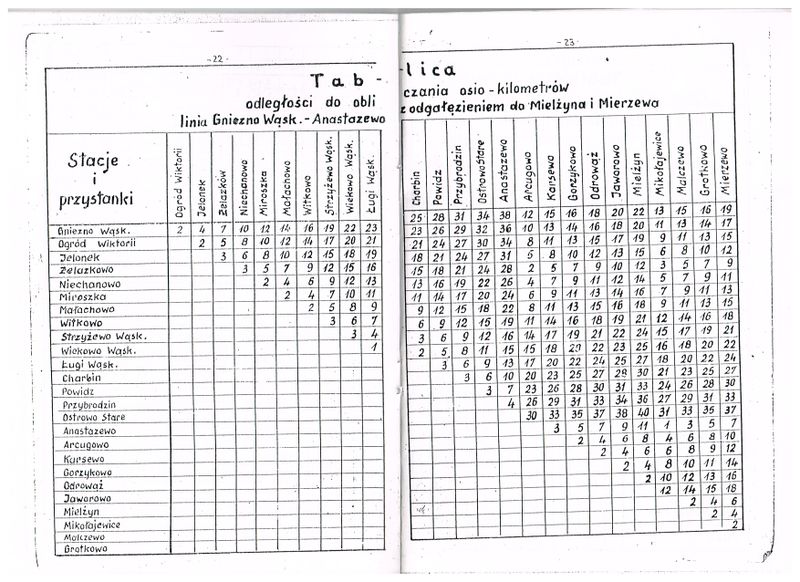 -22-
Tab-
odległości do obli
linia Gniezno Wąsk.-Anastazewo
Stacje
i
przystanki
Ogród Wiktorii
Jelonek
Żelazków
Niechanowo
Miroszka
Małachowo
Witkowo
Strzyżewo Wąsk.
Wiekowo Wąsk.
Ługi Wąsk.
Gniezno Wąsk. 2 4 7 10 12 14 16 19 22 23
Ogród Wiktorii 2 5 8 10 12 14 17 20 21
Jelonek 3 6 8 10 12 15 18 19
Żelazkowo 3 5 7 9 12 15 16
Niechanowo 2 4 6 9 12 13
Miroszka 2 4 7 10 11
Małachowo 2 5 8 9
Witkowo 3 6 7
Strzyżewo Wąsk. 3 4
Wiekowo Wąsk. 1
Ługi Wąsk.
Charbin
Powidz
Przybrodzin
Ostrowo Stare
Anastazewo
Arcugowo
Karsewo
Gorzykowo
Odrowąż
Jaworowo
Mielżyn
Mikołajewice
Malczewo
Grotkowo
-23-
lica
czania osio-kilometrów
z odgałęzieniem do Mielżyna i Mierzewa
Charbin
Powidz
Przybrodzin
Ostrowo Stare
Anastazewo
Arcugowo
Karsewo
Gorzykowo
Odrowąż
Jaworowo
Mielżyn
Mikołajewice
Malczewo
Grotkowo
Mierzewo
25 28 31 34 38 12 15 16 18 20 22 13 15 16 19
23 26 29 32 36 10 13 14 16 18 20 11 13 14 17
21 24 27 30 34 8 11 13 15 17 19 9 11 13 15
18 21 24 27 31 5 8 10 12 13 15 6 8 10 12
15 18 21 24 28 2 5 7 9 10 12 3 5 7 9
13 16 19 22 26 4 7 9 11 12 14 5 7 9 11
11 14 17 20 24 6 9 11 13 14 16 7 9 11 13
9 12 15 18 22 8 11 13 15 16 18 9 11 13 15
6 9 12 15 19 11 14 16 18 19 21 12 14 16 18
3 6 9 12 16 14 17 19 21 22 24 15 17 19 21
2 5 8 11 15 15 18 20 22 23 25 16 18 20 22
3 6 9 13 17 20 22 24 25 27 18 20 22 24
3 6 10 20 23 25 27 28 30 21 23 25 27
3 7 23 26 28 30 31 33 24 26 28 30
4 26 29 31 33 34 36 27 29 31 33
30 33 35 37 38 40 31 33 35 37
3 5 7 9 11 1 3 5 7
2 4 6 8 4 6 8 10
2 4 6 6 8 9 12
2 4 8 10 11 14
2 10 12 13 16
12 14 15 18
2 4 6
2 4
2